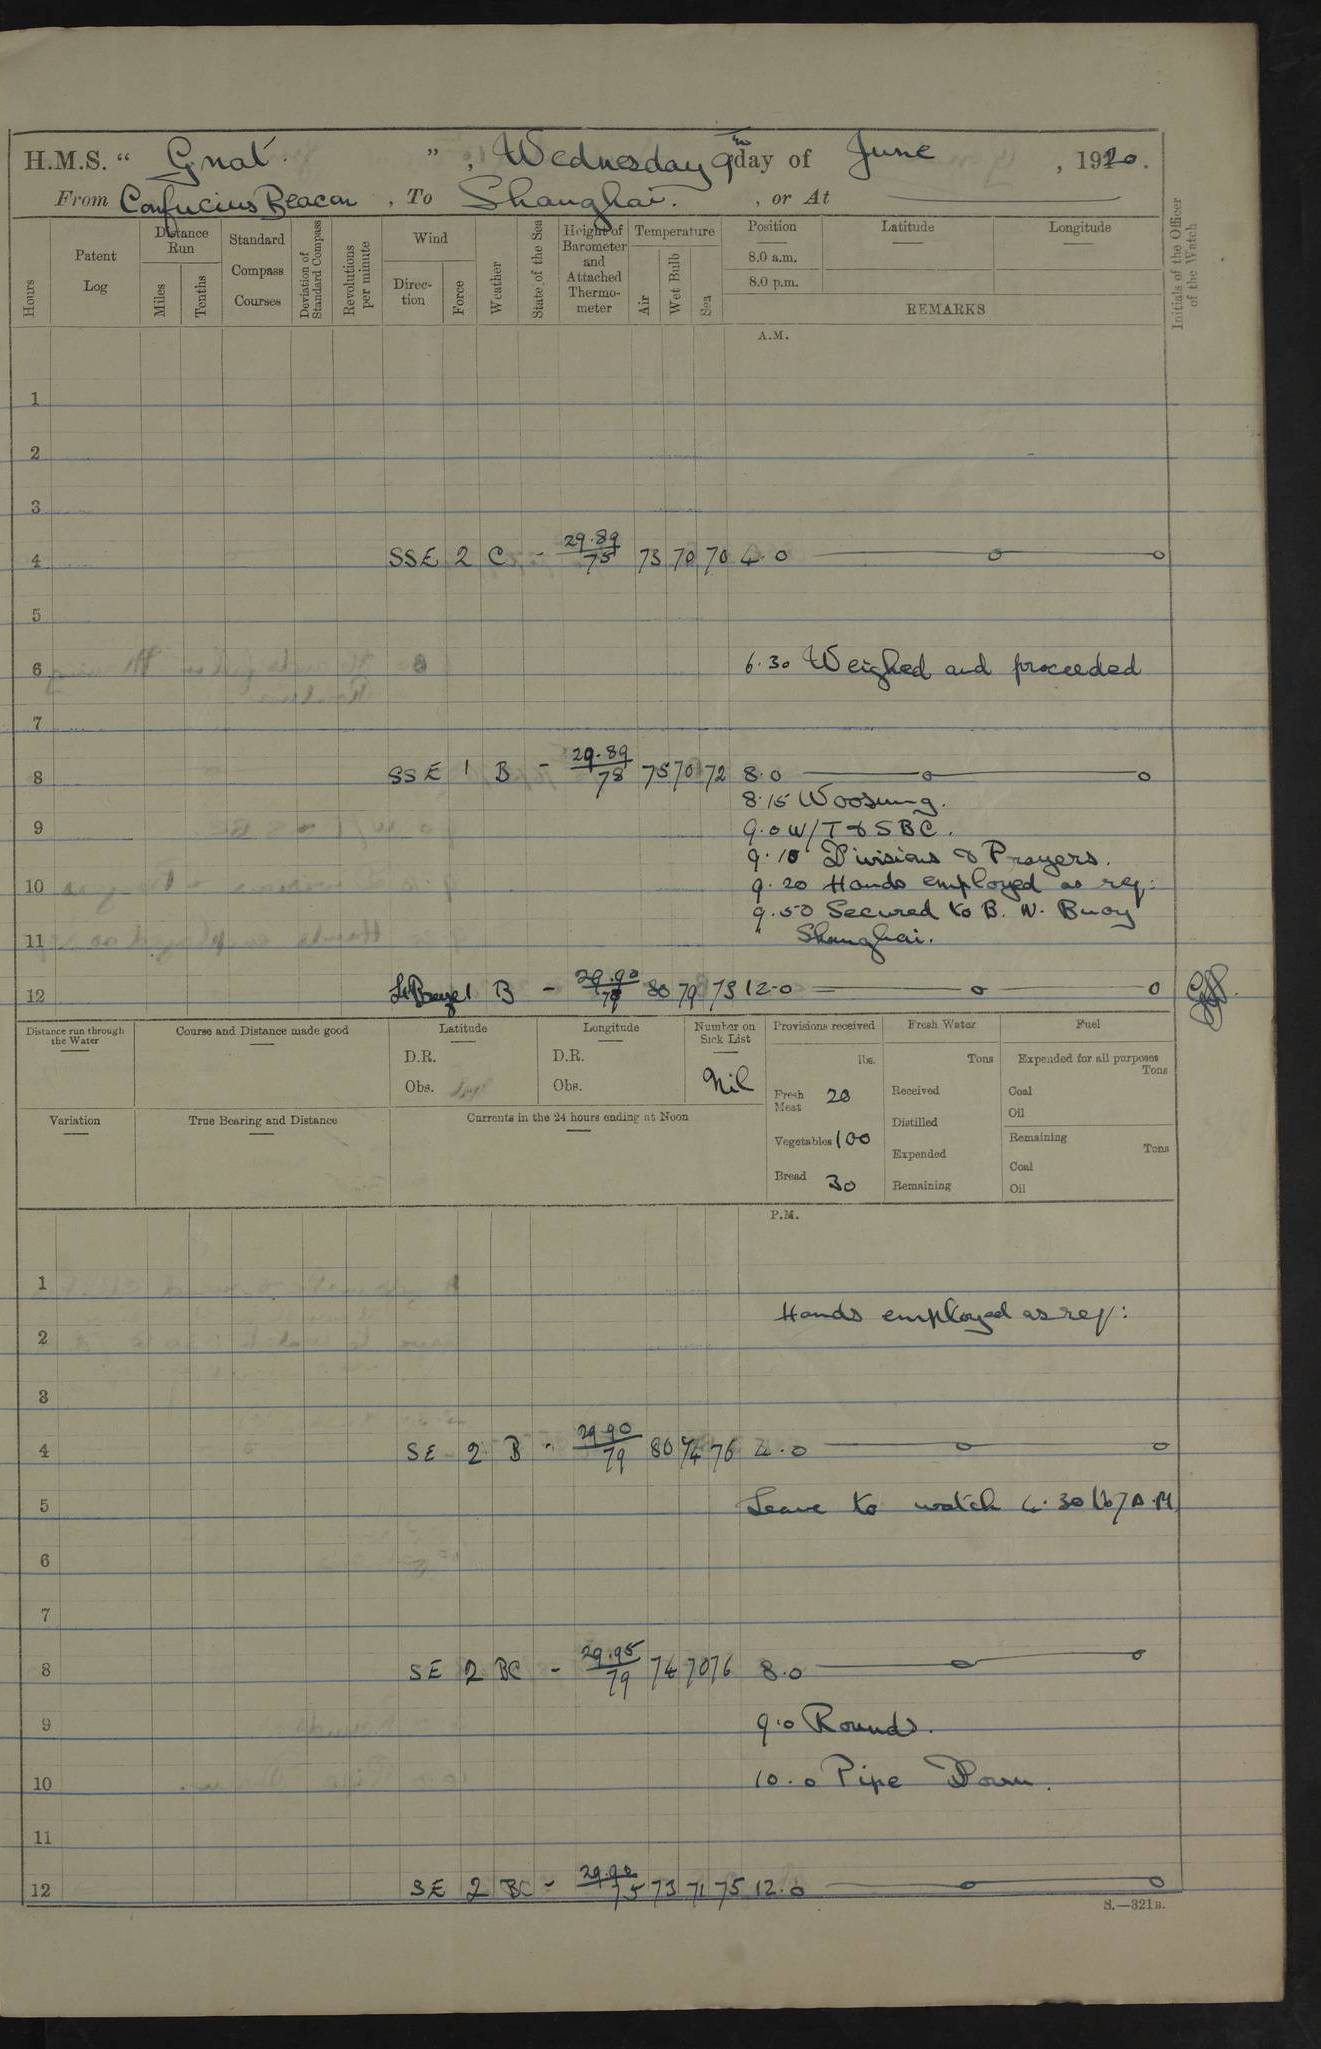 H.M.S. “ Gnat. ” , Wednesday 9th day of June , 1920.
From Confucius Beacon , To Shanghai. , or At
Hours
Patent Log
Distance Run
Miles
Tenths
Standard Compass Courses
Deviation of Standard Compass
Revolutions per minute
Wind
Direction
Force
Weather
State of the Sea
Height of Barometer and Attached Thermometer
Temperature
Air
Wet Bulb
Sea
Position
8.0 a.m.
8.0 p.m.
Latitude
Longitude
REMARKS
Initials of the Officer of the Watch
A.M.
1
2
3
4 SSE 2 C - 29.89/75 73 70 70 4.0
5
6 6.30 Weighed and proceeded
7
8 SSE 1 B - 29.89/78 75 70 72 8.0
8.15 Woosung.
9 9.0 W/T & SBC.
9.10 Divisions & Prayers.
10 9.20 Hands employed as req:
9.50 Secured to B. N. Buoy
11 Shanghai.
12 1 B - 29.90 80 79 73 12.0
Distance run through the Water
Course and Distance made good
Latitude
D.R.
Obs.
Longitude
D.R.
Obs.
Number on Sick List
Nil
Provisions received
lbs.
Fresh Meat 20
Vegetables 100
Bread 30
Fresh Water
Tons
Received
Distilled
Expended
Remaining
Fuel
Expended for all purposes
Tons
Coal
Oil
Remaining
Tons
Coal
Oil
Variation
True Bearing and Distance
Currents in the 24 hours ending at Noon
P.M.
1
Hands employed as req:
2
3
4 SE 2 B - 29.90/79 80 74 76 4.0
5 Leave to watch 4.30 to 7 A.M.
6
7
8 SE 2 BC - 29.95/79 74 70 76 8.0
9 9.0 Rounds.
10 10.0 Pipe Down.
11
12 SE 2 BC - 29.92/75 73 71 75 12.0
S.—321B.